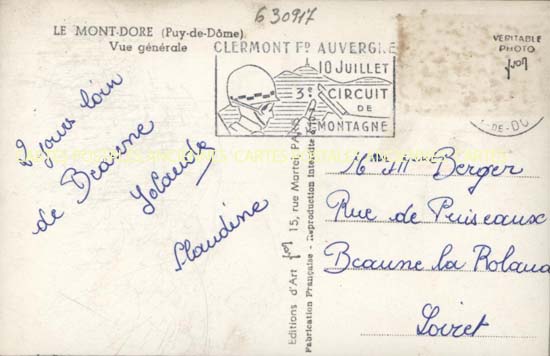 630917
LE MONT-DORE (Puy-de-Dôme)
Vue générale
CLERMONT Fᴰ AUVERGNE
10 JUILLET
3ᵉ CIRCUIT
DE
MONTAGNE
VÉRITABLE
PHOTO
Y-DE-DÔ
2 jours loin
de Beaune
Yolande
Claudine
Editions d'Art 15, rue Martel, PARIS
Fabrication Française - Reproduction interdite
Mr Mme Berger
Rue de Puiseaux
Beaune la Roland
Loiret